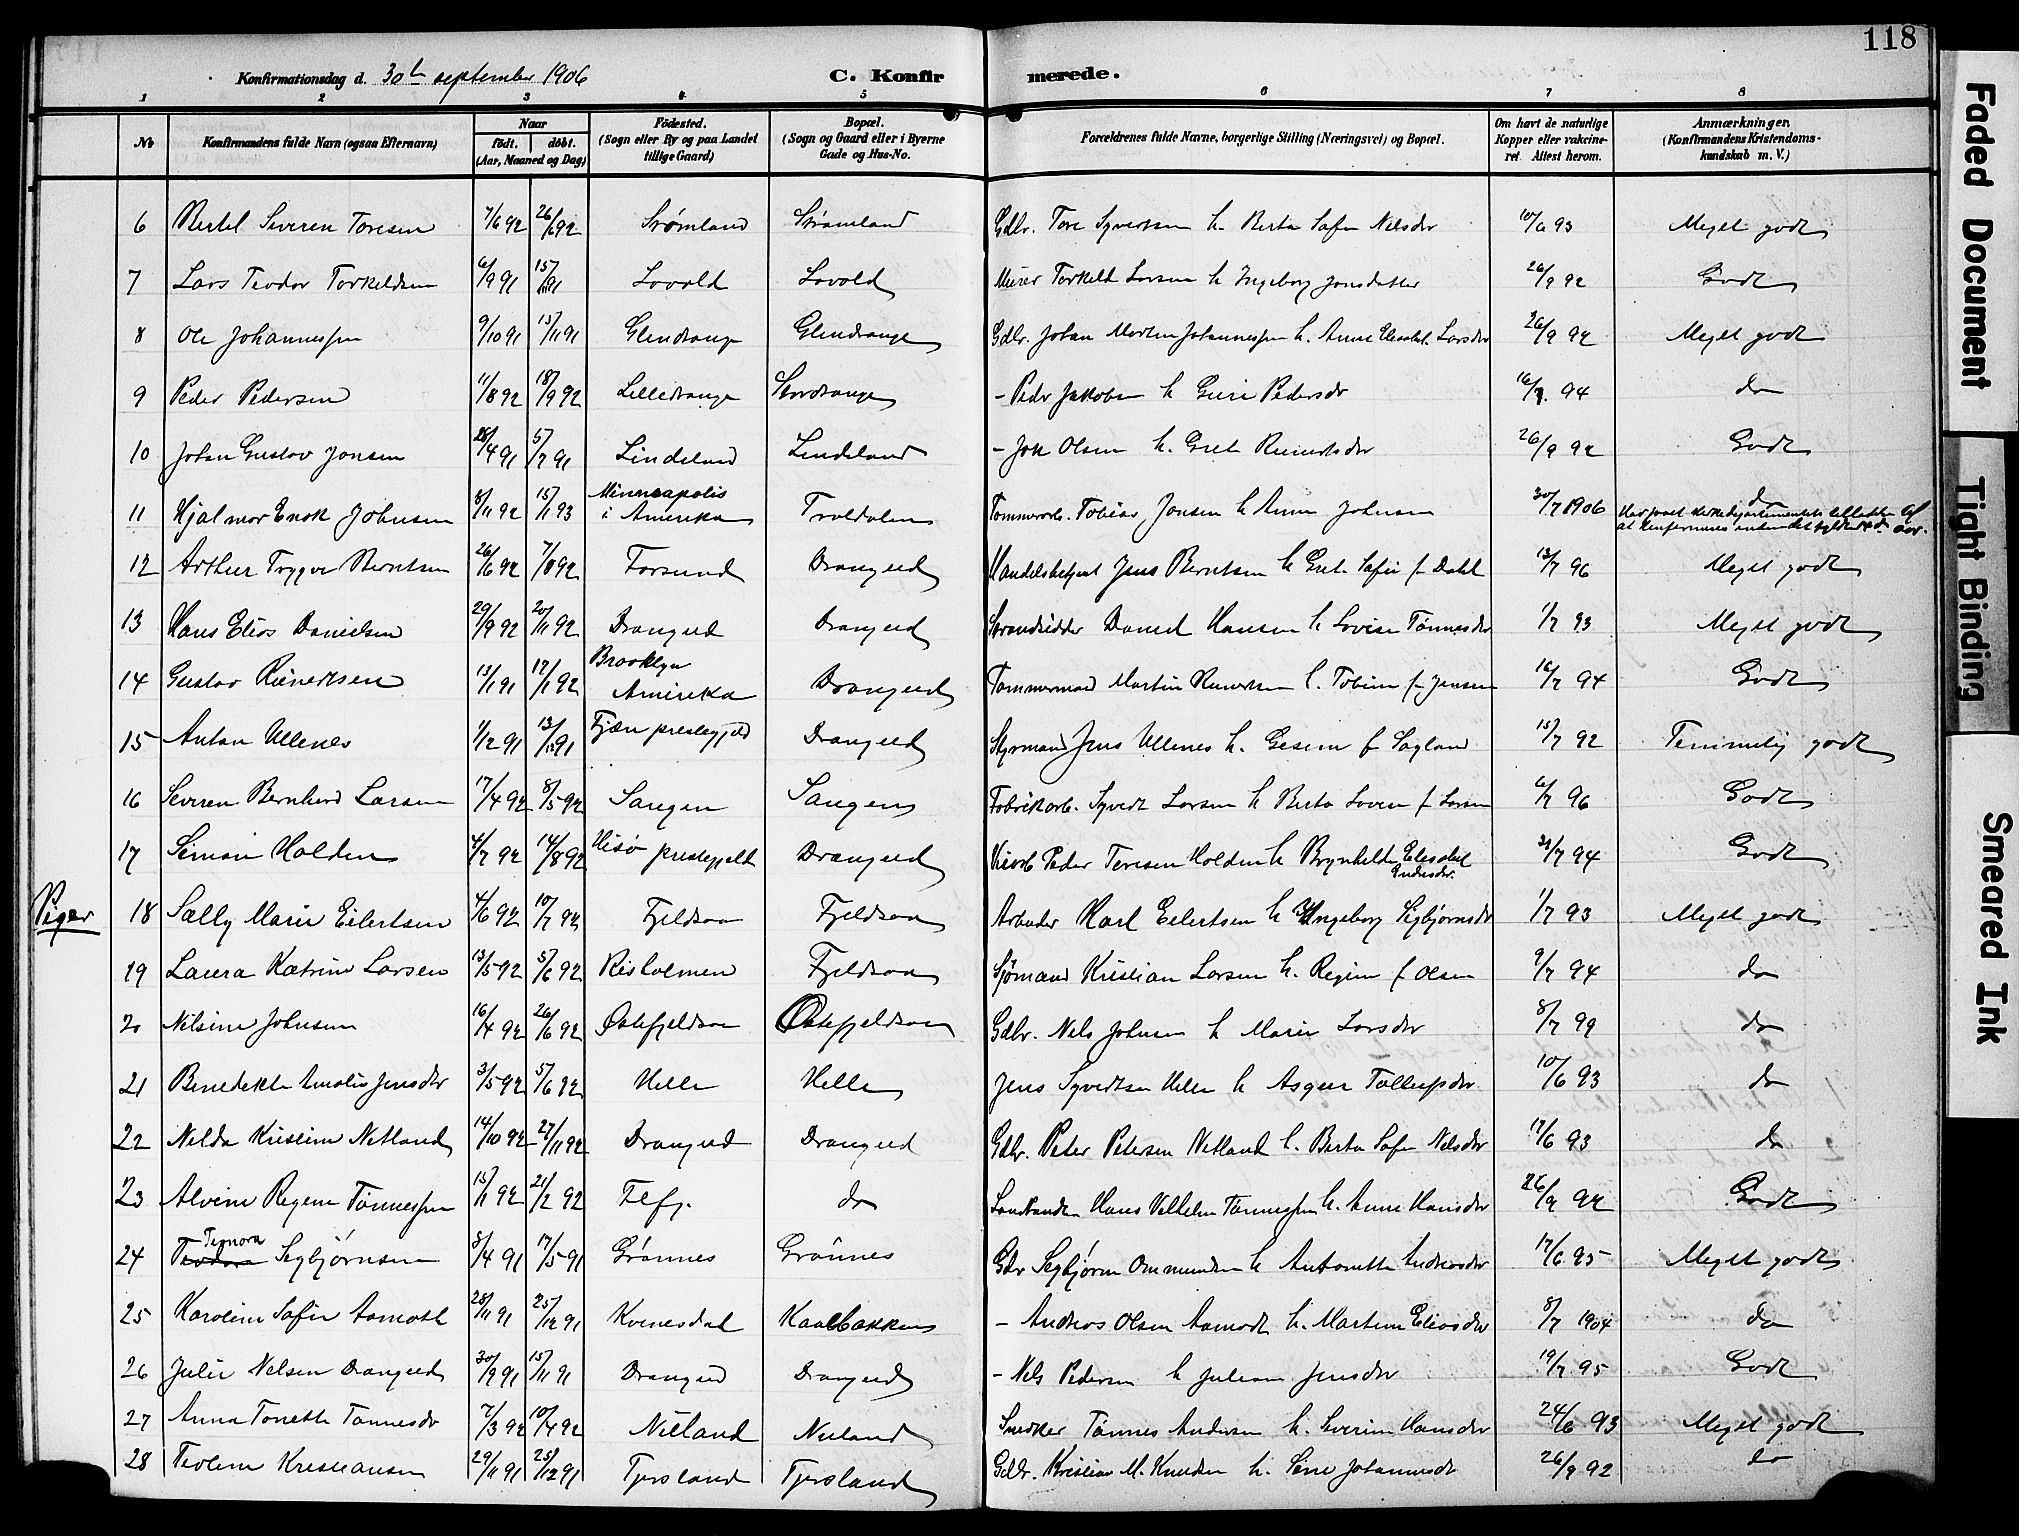 118
Konfirmationsdag d. 30te september 1906 C. Konfirmerede.
1 2 3 4 5 6 7 8
No Konfirmandens fulde Navn (ogsaa Efternavn) Naar født. døbt. (Aar, Maaned og Dag) Födested. (Sogn eller By og paa Landet tillige Gaard) Bopæl. (Sogn og Gaard eller i Byerne Gade og Hus-No. Forældrenes fulde Navne, borgerlige Stilling (Næringsvei) og Bopæl. Om havt de naturlige Kopper eller vakcineret. Attest herom. Anmærkninger. (Konfirmandens Kristendomskundskab m. V.)
6 Bertel Severen Toresen 7/6 92 26/6 92 Strømland Strømland Gdbr. Tore Syvertsen h. Berta Sofie Nilsdr 10/6 93 Meget godt
7 Lars Teodor Torkeldsen 6/9 91 15/11 91 Lovold Lovold Murer Torkeld Larsen h Ingeborg Jonsdatter 26/9 92 Godt
8 Ole Johannessen 9/10 91 15/11 91 Glendrange Glendrange Gdbr. Johan Martin Johannessen h. Anne Elisabet Larsdr 26/9 92 Meget godt
9 Peder Pedersen 11/8 92 18/9 92 Lilledrange Stordrange - Peder Jakobsen h Guri Pedersdr 16/7. 94 do
10 Johan Gustav Jonsen 28/4 91 5/7 91 Lindeland Lindeland - Jon Olsen h. Gret Reinertsdr 26/9 92 Godt
11 Hjalmar Enok Johnsen 8/11 92 15/1 93 Minneapolis i Amerika Traldalen Tømmerarb. Tobias Jonsen h Anne Johnsen 30/7 1906 do
Har faaet kirkedepartementets tilladelse til at konfirmeres inden det fyldte 14de aar.
12 Arthur Trygve Berntsen 26/6 92 7/8 92 Farsund Drangeid Handelsbetjent Jens Berntsen h Gret. Sofie f. Dahl 13/7 96 Meget godt
13 Hans Elias Danielsen 29/9 92 20/11 92 Drangeid Drangeid Strandsidder Daniel Hansen h Lovise Tønnesdr 1/7 93 Meget godt
14 Gustav Reinertsen 13/1 91 17/1 92 Brooklyn Amerika Drangeid Tømmermand Martin Reinertsen h. Tobine f. Jensen 16/7 94 Godt
15 Anton Ullenes 1/12 91 13/12 91 Fjære prestegjeld Drangeid Styrmand Jens Ullenes h. Gesine f. Sagland 15/7 92 Temmelig godt
16 Severen Bernhard Larsen 17/4 92 8/5 92 Sangen Sangen Fabrikarb. Syvert Larsen h Berta Lovise f. Larsen 6/7 96 Godt
17 Simon Holden 4/7 92 14/8 92 Hisø prestegjeld Drangeid Peder Teresen Holden h Brynhilde Elisabet Endresdr. 31/7 94 Godt
Piger 18 Sally Marie Eilertsen 4/6 92 10/7 92 Fjeldsaa Fjeldsaa Arbeider Karl Eilertsen h Ingeborg Sigbjørnsdr 1/7 93 Meget godt
19 Laura Katrine Larsen 13/5 92 5/6 92 Risholmen Fjeldsaa Sjømand Kristian Larsen h. Regine f. Olsen 9/7 94 do
20 Nilsine Johnsen 16/4 92 26/6 92 Østefjeldsaa Østefjeldsaa Gdbr. Nels Johnsen h Marie Larsdr 8/7 99 do
21 Benedekte Amalie Jensdtr 3/5 92 5/6 92 Helle Helle Jens Syvertsen Helle h Asgier Tallegsdr 10/6 93 do
22 Nelda Kristine Netland 14/10 92 27/11 92 Drangeid Drangeid Gdbr. Peter Petersen Netland h. Berta Sofie Nilsdr 17/6 93 do
23 Alvine Regine Tønnessen 15/1 92 21/2 92 Flfj. do Hans Vilhelm Tønnessen h. Anne Hansdr 26/9 92 Godt
24 Teodora Tegnora Segbjørnsen 8/4 91 17/5 91 Grønnes Grønnes Gdr Segbjørn Ommundsen h Antonette Andreasdr 17/6 95 Meget godt
25 Karoline Sofie Aamodt 28/11 91 25/12 91 Kvinesdal Kaalbakken - Andreas Olsen Aamodt h. Martine Eliasdr 8/7 1904 do
26 Julie Nelsen Drangeid 30/9 91 15/11 91 Drangeid Drangeid - Nels Pedersen h Juliane Jensdr 19/7 95 Godt
27 Anna Tonette Tønnesdr 7/3 92 10/4 92 Nuland Nuland Snedker Tønnes Andersen h. Severine Hansdr 24/6 93 Meget godt
28 Teoline Kristiansen 29/11 91 25/12 91 Tjersland Tjersland Gdbr. Kristian M. Knudsen h. Sine Johannesdr 26/9 92 do
Faded Document
Tight Binding
Smeared Ink